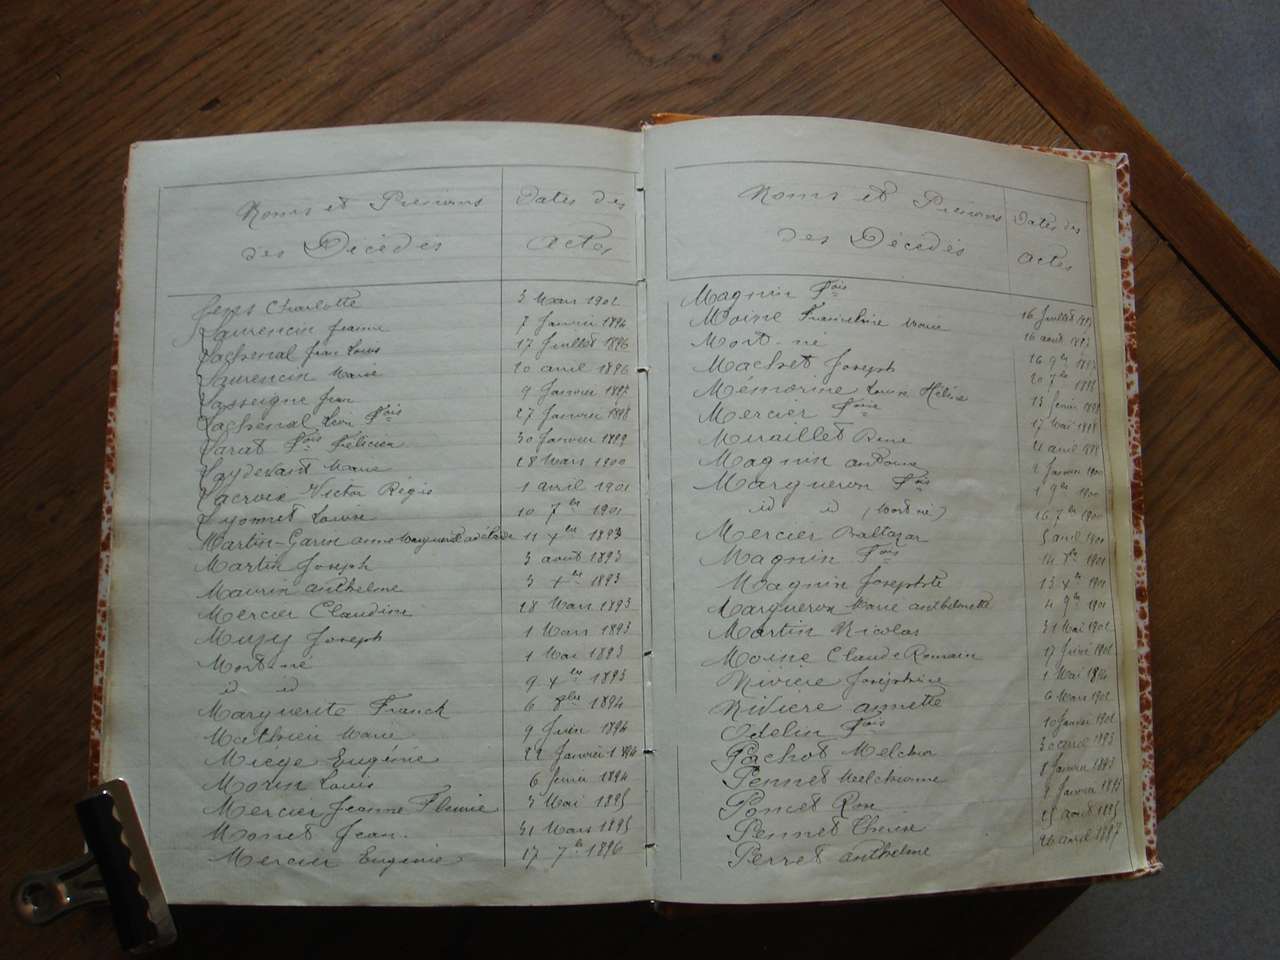 Noms et Prénoms Dates des
des Décédés actes
Charlotte 3 Mars 1902
Laurencin Jeanne 7 Janvier 1894
Lachenal Jean Louis 17 Juillet 1896
Laurencin Marie 20 avril 1896
Lasseigne Jean 9 Janvier 1897
Lachenal Léon Fois 27 Janvier 1898
Larat Fois Félicien 30 Janvier 1899
Laydevant Marie 28 Mars 1900
Lacroix Victor Régis 1 avril 1901
Lyonnet Louise 10 7bre 1901
Martin-Garin anne Marguerite adélaïde 11 Xbre 1893
Martin Joseph 3 août 1893
Maurin anthelme 3 Xbre 1893
Mercier Claudine 28 Mars 1893
Muzy Joseph 1 Mars 1893
Mort-né 1 Mai 1893
id id 9 Xbre 1893
Marguerite Franck 6 8bre 1894
Mathieu Marie 9 Juin 1894
Miège Eugénie 22 Janvier 1894
Morin Louis 6 février 1894
Mercier Jeanne Fleurie 3 Mai 1895
Monet Jean. 31 Mars 1895
Mercier Eugénie 17 7bre 1896
Noms et Prénoms Dates des
des Décédés actes
Magnin Fois
Moine Marie 16 Juillet
Mort-né 16 août
Machet Joseph 16 9bre
Mémorine Louise Hélène 20 7bre
Mercier 13 février
Miraillet 17 Mai
Magnin antoine 4 avril
Margueron Fois Janvier 1900
id id (Mort né) 1 9bre 1900
Mercier Baltazar 16 7bre 1900
Magnin Fois 5 avril 1900
Magnin Josephte 14 1901
Margueron Marie anthelmette 13 Xbre 1901
Martin Nicolas 4 9bre 1901
Moine Claude Romain 31 Mai 1902
Rivière Joséphine 17 févri 1902
Rivière annette 1 Mai 1894
Odelin Fois 6 Mars 1902
Pachot Melchior 10 Janvier 1902
Pennet Melchionne 30 avril 1893
Poncet Rose 8 Janvier 1893
Pennet Therese 9 Janvier 1895
Perret anthelme 25 août 1895
26 avril 1887